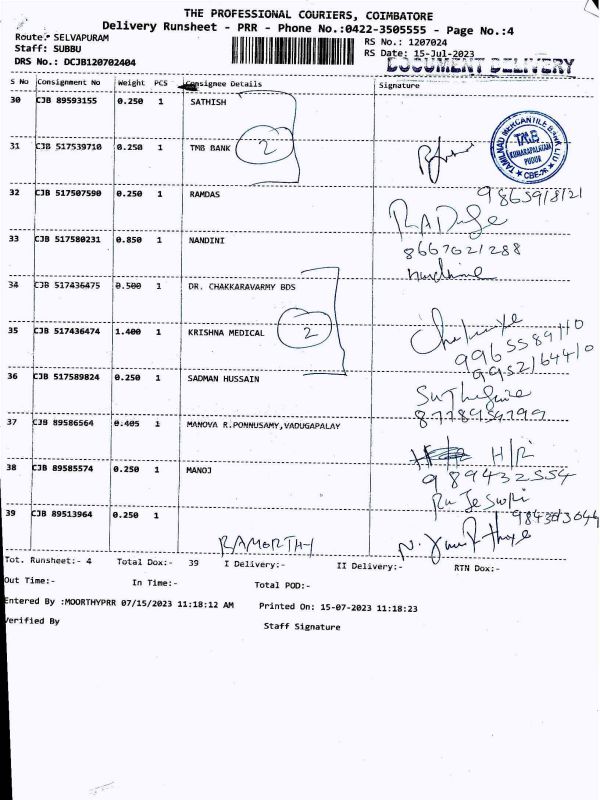 THE PROFESSIONAL COURIERS, COIMBATORE
Delivery Runsheet - PRR - Phone No.:0422-3505555 - Page No.:4
Route: SELVAPURAM
RS No.: 1207024
Staff: SUBBU
RS Date: 15-Jul-2023
DRS No.: DCJB120702404
DOCUMENT DELIVERY
S No Consignment No Weight PCS Consignee Details Signature
30 CJB 89593155 0.250 1 SATHISH
31 CJB 517539710 0.250 1 TMB BANK 2
TAMILNAD MERCANTILE BANK LTD
TMB
KUMARAPALAYAM
PUDUR
CBE-26
32 CJB 517507590 0.250 1 RAMDAS
33 CJB 517580231 0.850 1 NANDINI
8667021288
34 CJB 517436475 0.500 1 DR. CHAKKARAVARMY BDS
35 CJB 517436474 1.400 1 KRISHNA MEDICAL 2
9952164410
36 CJB 517589824 0.250 1 SADMAN HUSSAIN
37 CJB 89586564 0.405 1 MANOVA R.PONNUSAMY,VADUGAPALAY
H/R
38 CJB 89585574 0.250 1 MANOJ
39 CJB 89513964 0.250 1
Tot. Runsheet:- 4 Total Dox:- 39 I Delivery:- II Delivery:- RTN Dox:-
Out Time:- In Time:- Total POD:-
Entered By :MOORTHYPRR 07/15/2023 11:18:12 AM Printed On: 15-07-2023 11:18:23
Verified By Staff Signature